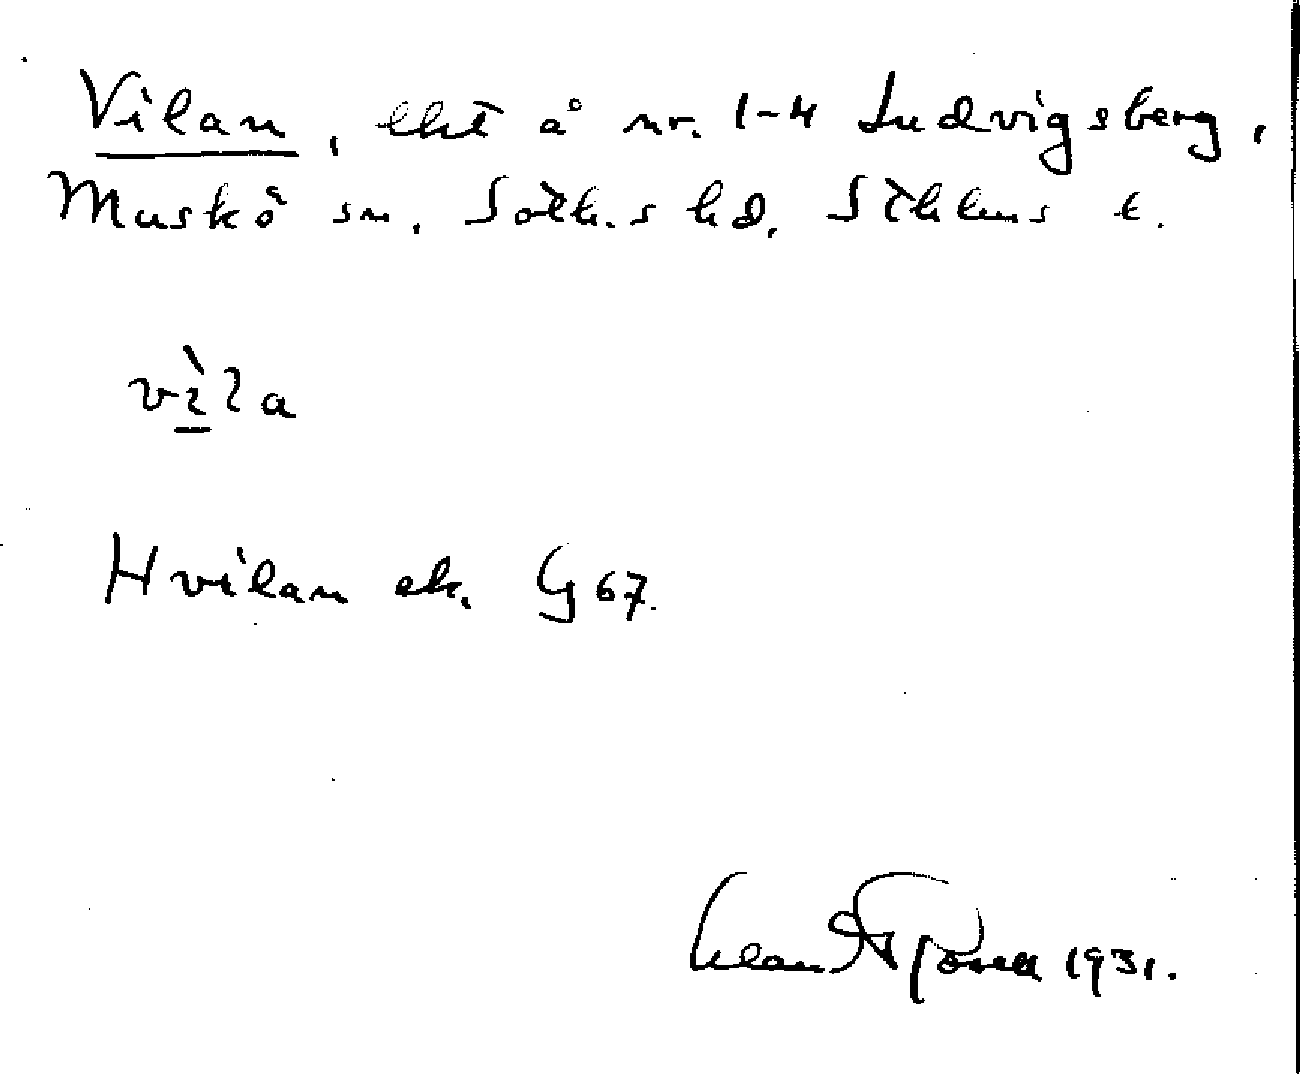 Vilan, lht å nr. 1-4 Ludvigsberg,
Muskö sn, Soth.s hd, Sthlms l.
vìla
Hvilan ek. G 67.
1931.